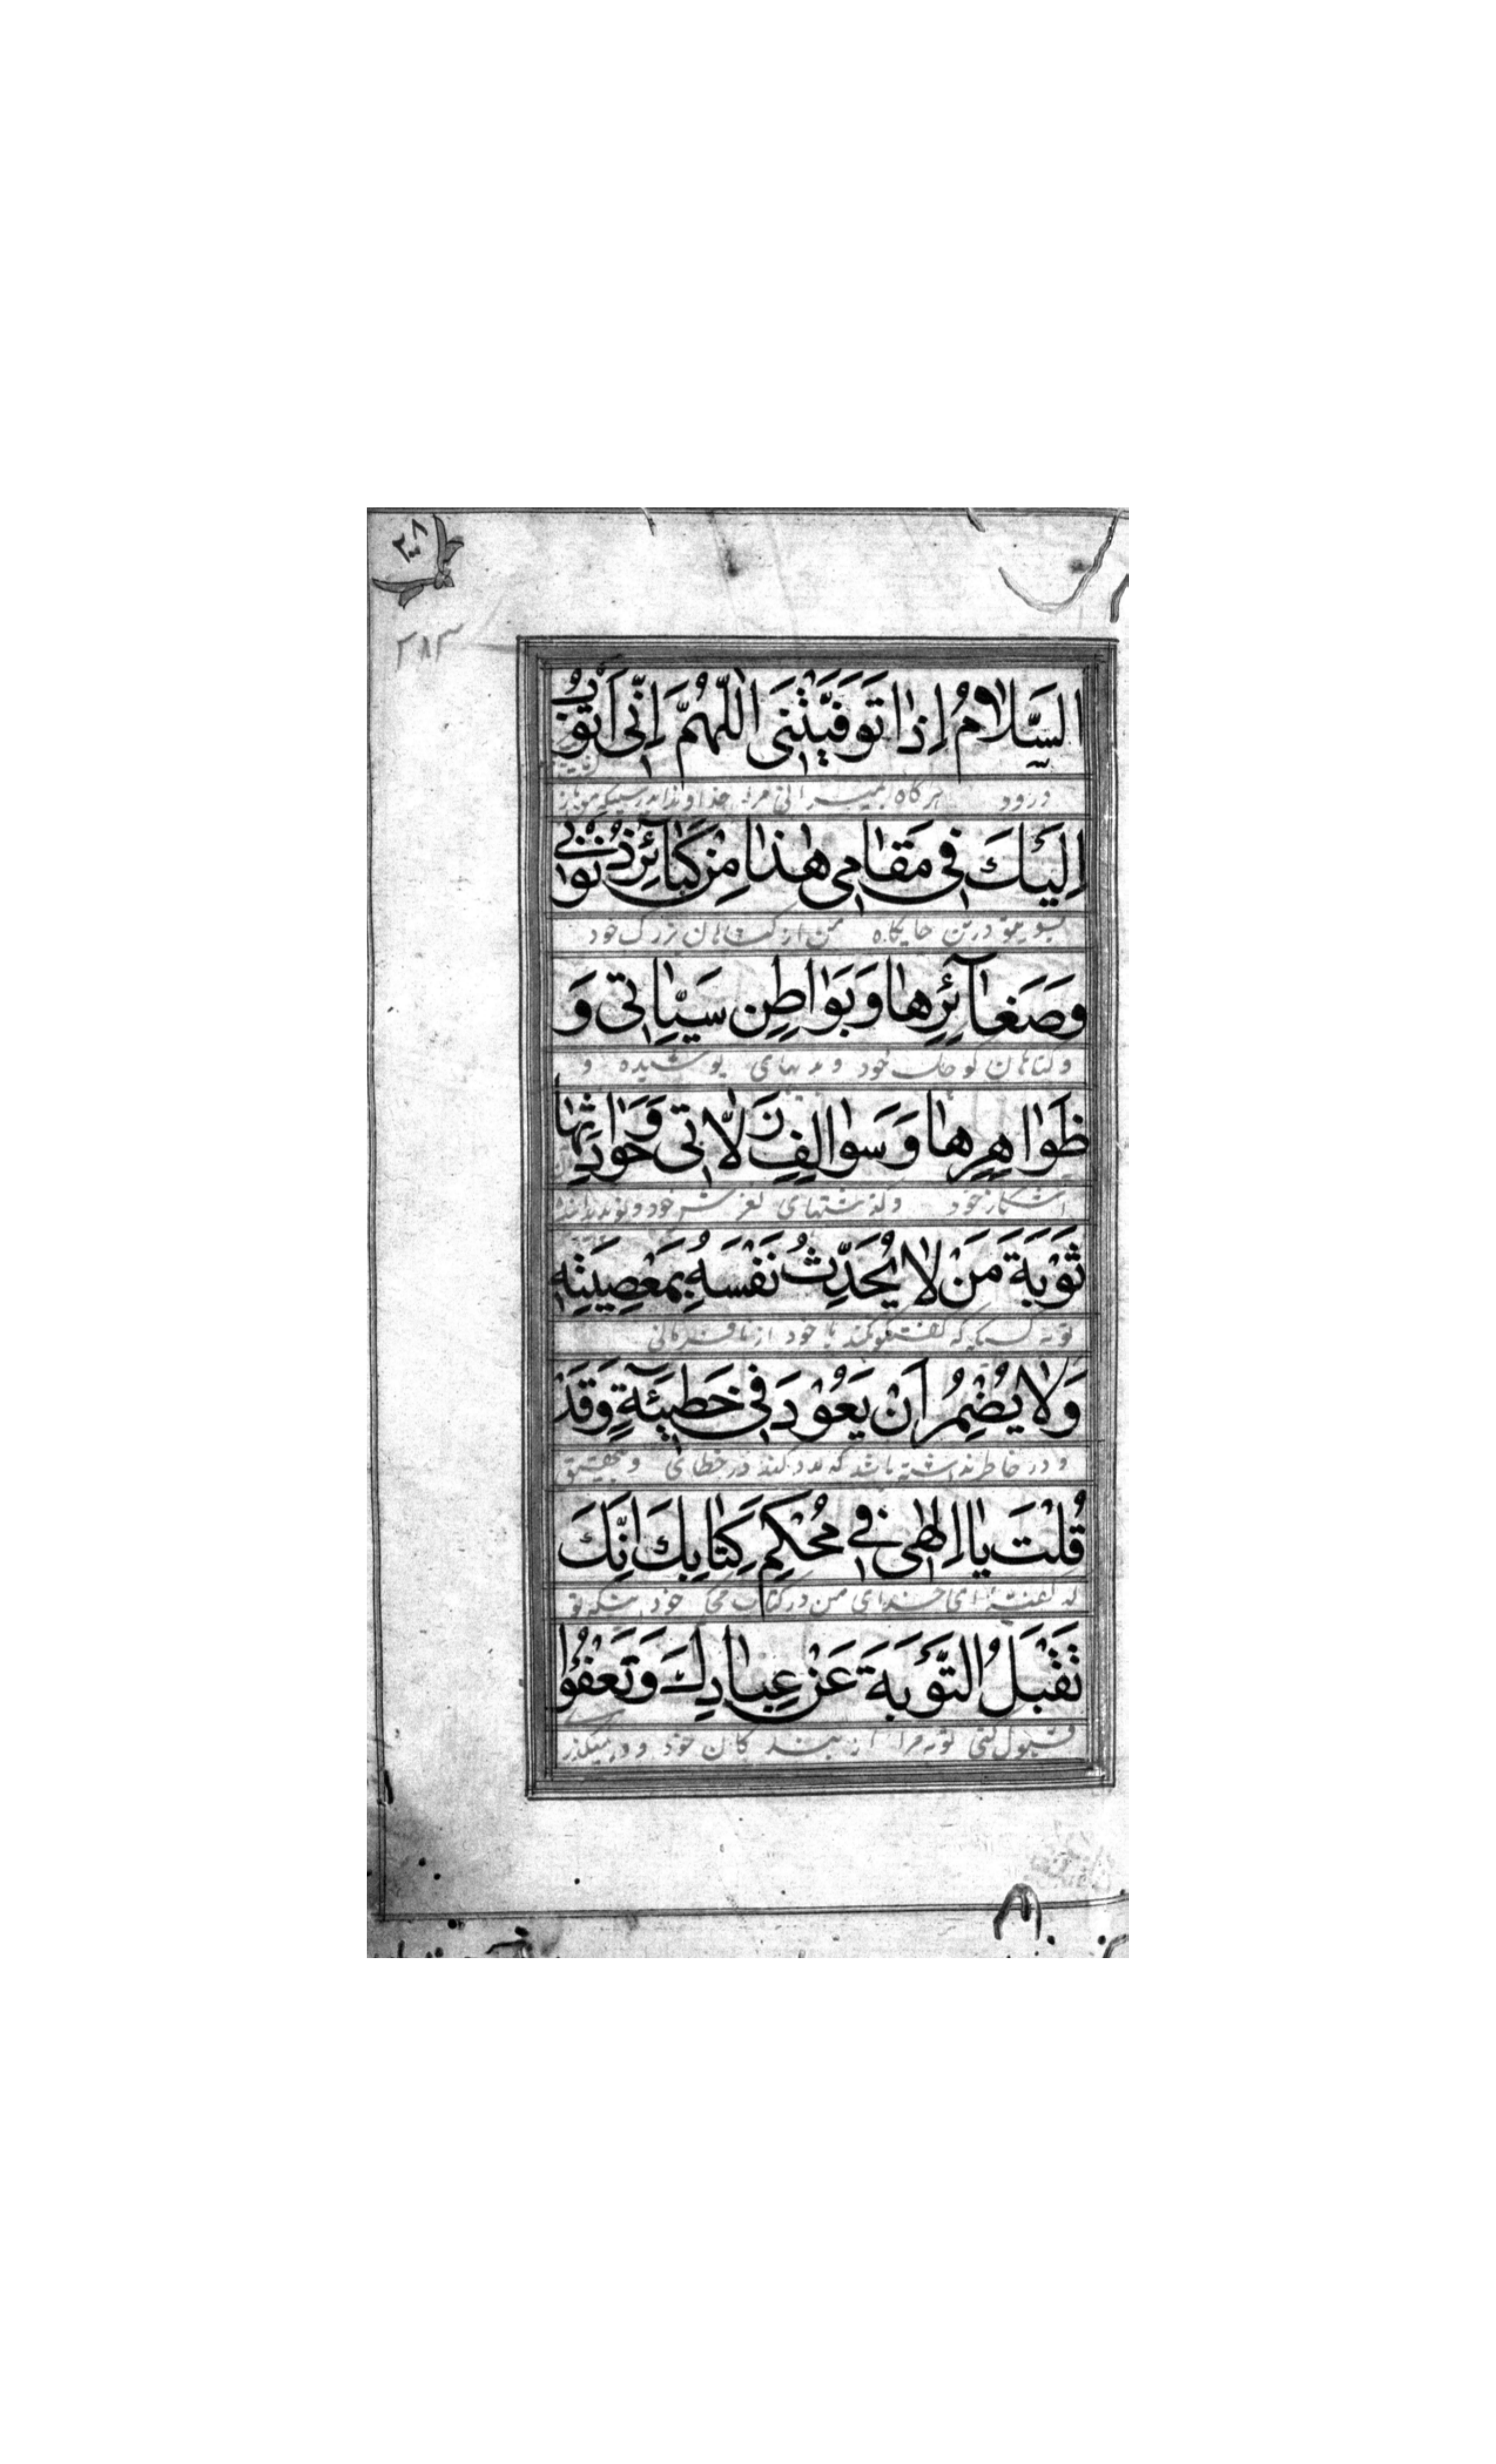 ٢٠٨
٢٨٣
السَّلَامُ اِذَا تَوَفَّيْتَنِى اَللّٰهُمَّ اِنِّى اَتُوْبُ
درود هرگاه بمیرانی مرا خداوندا بدرستیکه من باز
اِلَيْكَ فِى مَقَامِى هٰذَا مِنْ كَبَآئِرِ ذُنُوْبِى
بسوی تو درین جایگاه من از گناهان بزرگ خود
وَصَغَآئِرِهَا وَبَوَاطِنِ سَيِّاٰتِى وَ
و گناهان کوچک خود و بدیهای پوشیده و
ظَوَاهِرِهَا وَسَوَالِفِ زَلَّاتِى وَحَوَادِثِهَا
آشکار خود و گذشتهای لغزش خود و
تَوْبَةَ مَنْ لَا يُحَدِّثُ نَفْسَهُ بِمَعْصِيَتِهِ
توبه کسیکه گفتگو نکند با خود از نافرمانی
وَلَا يُضْمِرُ اَنْ يَعُوْدَ فِى خَطِيْٓئَةٍ وَقَدْ
و در خاطر نداشته باشد که عود کند در خطای و بتحقیق
قُلْتَ يَا اِلٰهِى فِى مُحْكَمِ كِتَابِكَ اِنَّكَ
که گفتهٔ ای خدای من در کتاب محکم خود بدرستیکه تو
تَقْبَلُ التَّوْبَةَ عَنْ عِبَادِكَ وَتَعْفُوْا
قبول کنی توبه را از بندگان خود و در میگذری